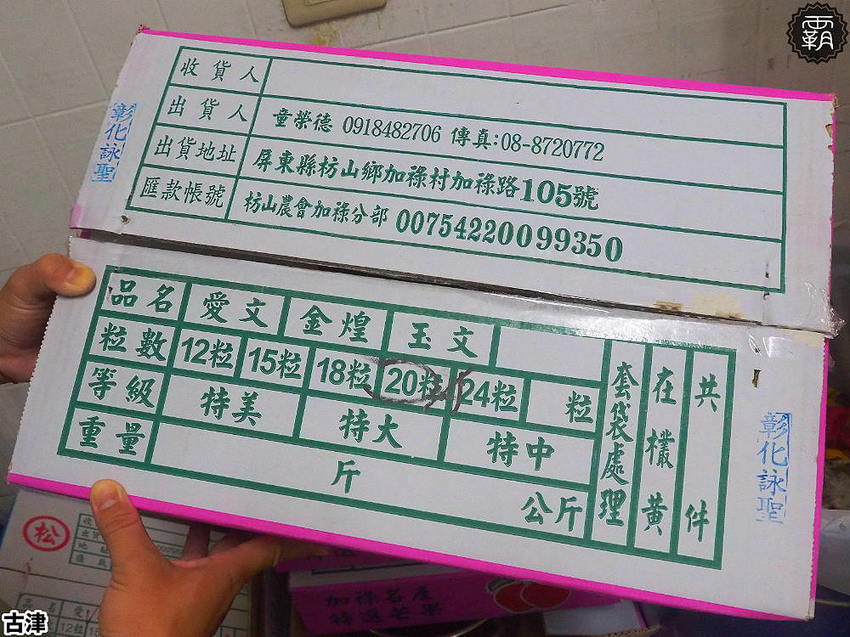 霸
收貨人
出貨人 童榮德 0918482706 傳真:08-8720772
出貨地址 屏東縣枋山鄉加祿村加祿路105號
匯款帳號 枋山農會加祿分部 00754220099350
彰化詠聖
品名 愛文 金煌 玉文
粒數 12粒 15粒 18粒 20粒 24粒 粒
等級 特美 特大 特中
重量 斤 公斤
套袋處理
在欉黃
共 件
彰化詠聖
松
加祿名產
特選芒果
古津